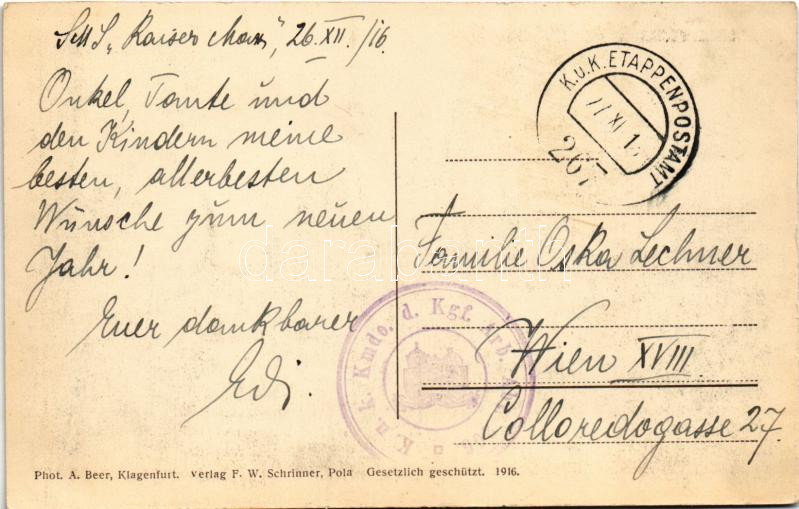 SMS „Kaiser Max", 26. XII. /16.
Onkel, Tante und
den Kindern meine
besten, allerbesten
Wünsche zum neuen
Jahr!
Euer dankbarer
Edi.
K.u.K. ETAPPENPOSTAMT
267
Familie Oska Lechner
Wien XVIII
Colloredogasse 27.
K. u. k. Kmdo. d. Kgf. Arb.
Phot. A. Beer, Klagenfurt. verlag F. W. Schrinner, Pola Gesetzlich geschützt. 1916.
darabanth